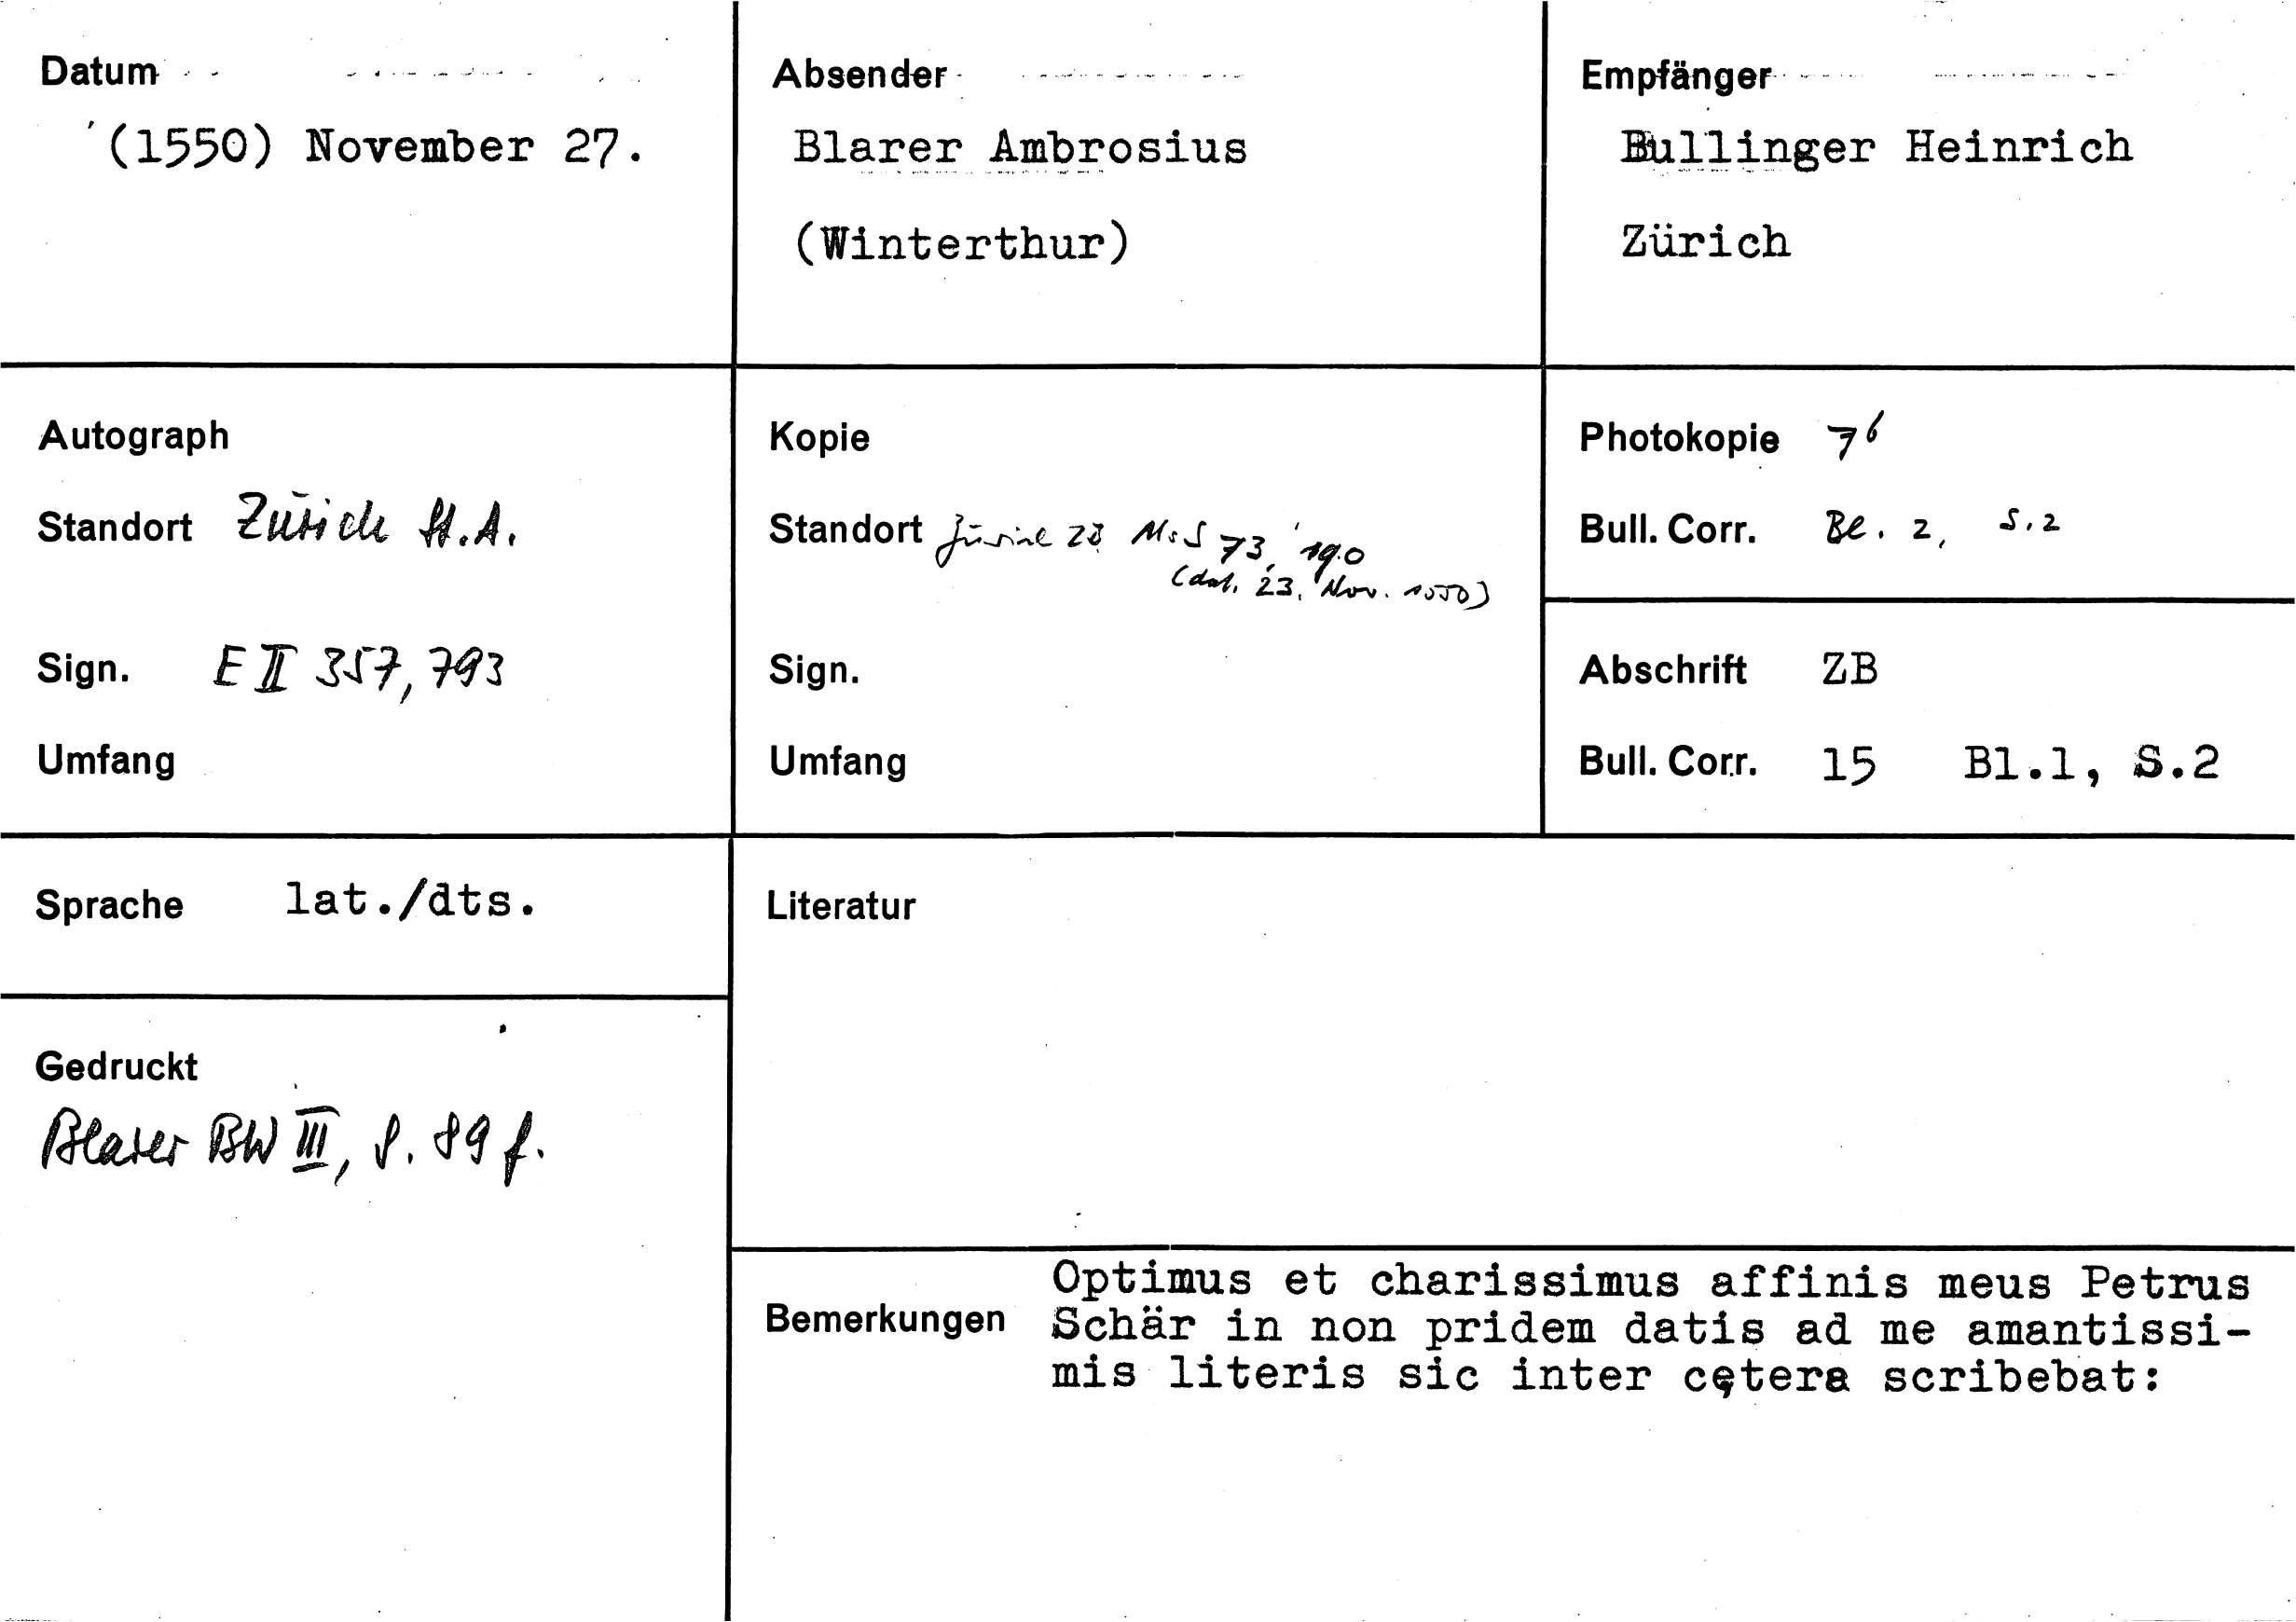 Datum
(1550) November 27.
Absender
Blarer Ambrosius
(Winterthur)
Empfänger
Bullinger Heinrich
Zürich
Autograph
Standort Zürich St.A.
Sign. E II 357, 793
Umfang
Kopie
Standort Zürich ZB Ms S 73, 190
(dat. 23. Nov. 1550)
Sign.
Umfang
Photokopie
Bull. Corr. Bl. 2, S. 2
Abschrift ZB
Bull. Corr. 15 Bl.1, S.2
Sprache lat./dts.
Literatur
Gedruckt
Blarer BW III, S. 89 f.
Bemerkungen
Optimus et charissimus affinis meus Petrus
Schär in non pridem datis ad me amantissi-
mis literis sic inter cętera scribebat: